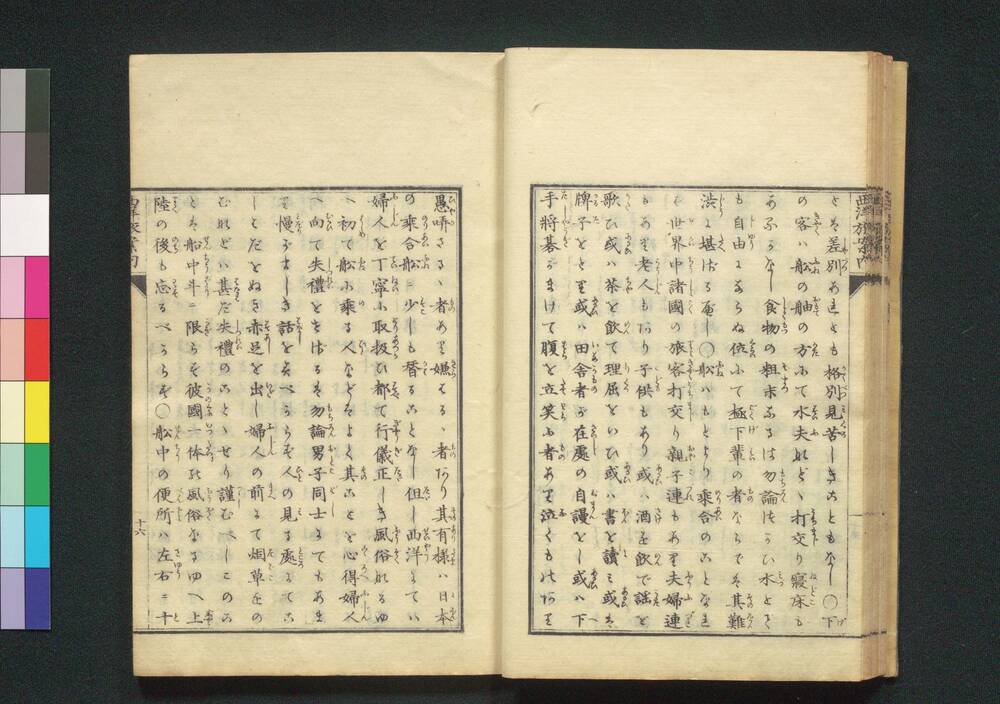 とは差別あれども格別見苦しきこともなし〇下
の客ハ船の舳の方にて水夫などゝ打交り寢床も
あるなし食物の粗末なるは勿論つかひ水とても
も自由ならぬ位にて極下輩の者ならでは其難
渋に堪ざる可し〇船ハもとより乗合のことなれ
は世界中諸國の旅客打交り親子連もあり夫婦連
もあり老人もあり子供もあり或ハ酒を飲て謡を
歌ひ或ハ茶を飲て理屈をいひ或ハ書を讀み或は
牌子をとり或ハ田舎者が在處の自謾をし或ハ下
手將碁にまけて腹を立笑ふ者あり泣くものあり
愚哢さるゝ者あり嫌はるゝ者あり其有様ハ日本
の乗合船に少しも替ることなし但し西洋にてハ
婦人を丁寧に取扱ひ都て行儀正しき風俗なるゆ
へ初て船に乗る人などはよく其ことを心得婦人
へ向て失禮をせざるは勿論男子同士にてもあま
り慢りましき話をすべからず人の見る處にてこ
しとたびをぬき赤足を出し婦人の前にて烟草をの
むなどハ甚だ失禮のことゝせり謹むべしこのこ
とハ船中斗に限らず彼國一体の風俗なるゆへ上
陸の後も忘るべからず〇船中の便所ハ左右に十
十六
西洋旅案内